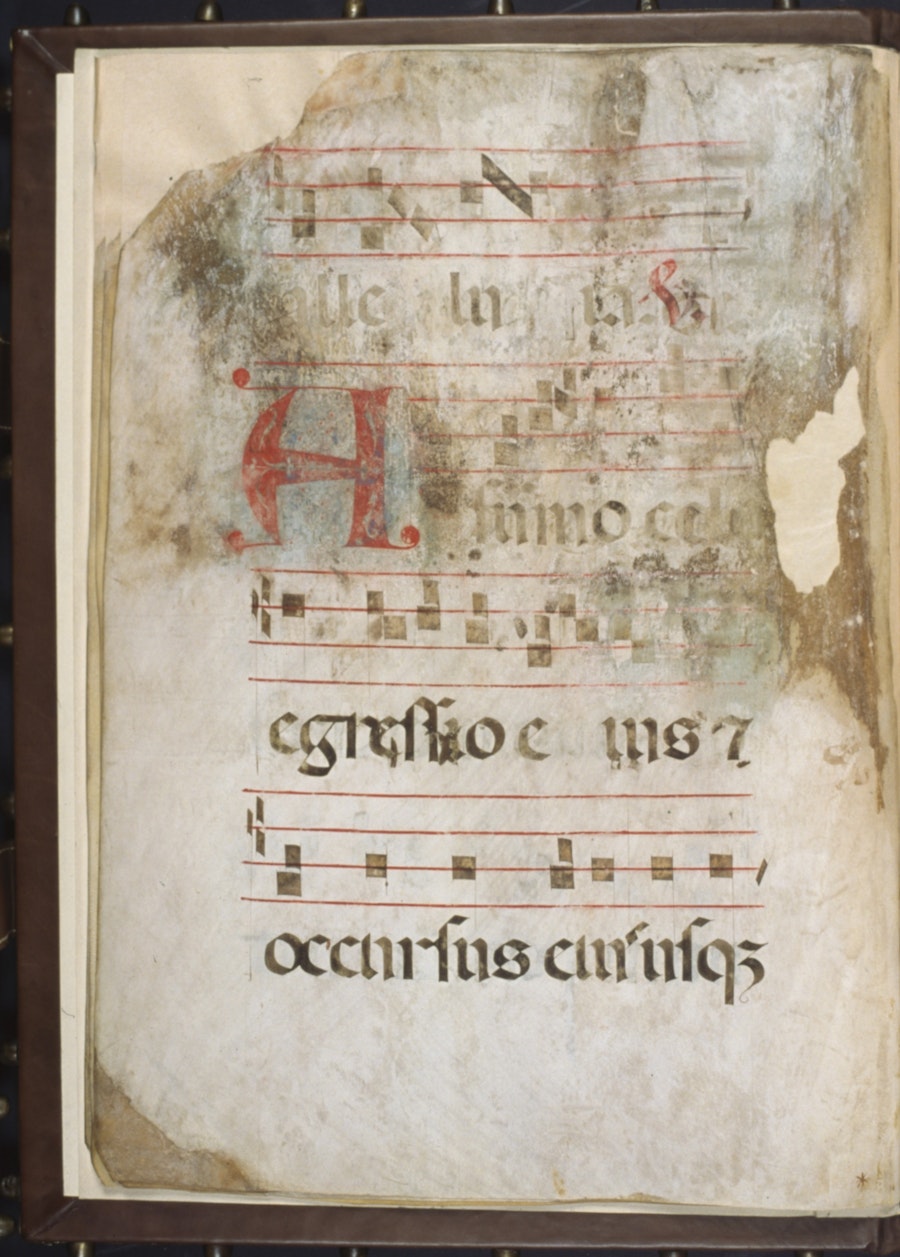 alle lu ia. ℣.
A summo celo
egressio e ius ⁊
occursus eius usqꝫ